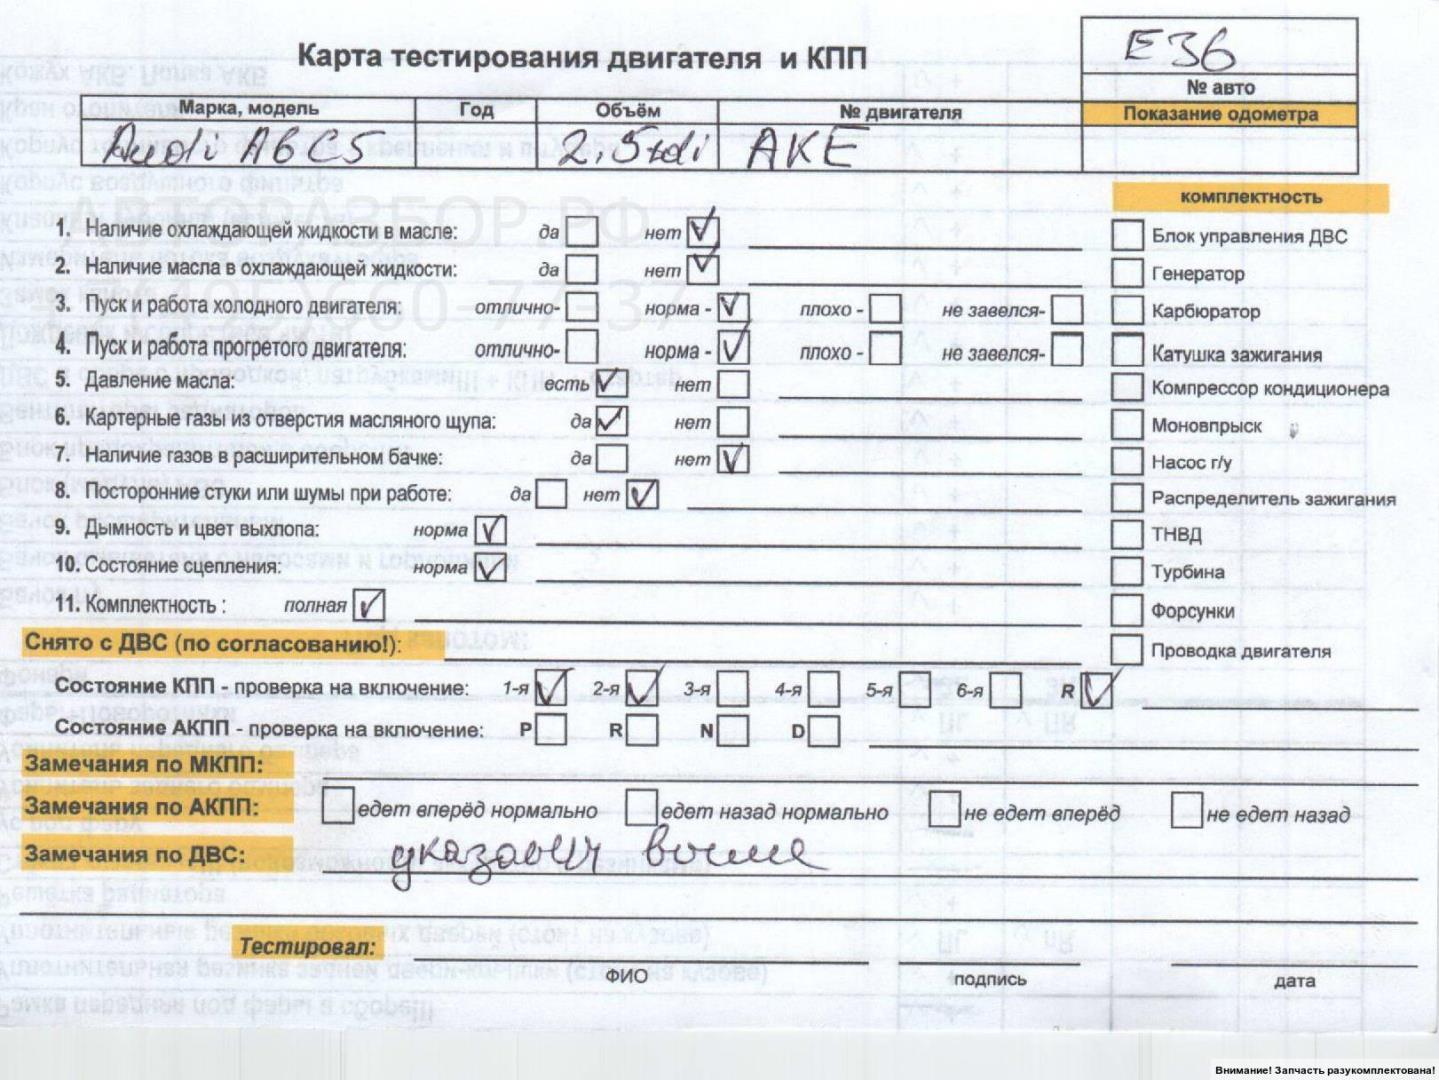 Карта тестирования двигателя и КПП
E36
№ авто
Марка, модель Год Объём № двигателя Показание одометра
Audi A6C5 2,5tdi AKE
АВТОРАЗБОР.РФ
комплектность
1. Наличие охлаждающей жидкости в масле: да нет Блок управления ДВС
2. Наличие масла в охлаждающей жидкости: да нет Генератор
3. Пуск и работа холодного двигателя: отлично- норма - плохо - не завелся- Карбюратор
4. Пуск и работа прогретого двигателя: отлично- норма - плохо - не завелся- Катушка зажигания
5. Давление масла: есть нет Компрессор кондиционера
6. Картерные газы из отверстия масляного щупа: да нет Моновпрыск
7. Наличие газов в расширительном бачке: да нет Насос г/у
8. Посторонние стуки или шумы при работе: да нет Распределитель зажигания
9. Дымность и цвет выхлопа: норма ТНВД
10. Состояние сцепления: норма Турбина
11. Комплектность : полная Форсунки
Снято с ДВС (по согласованию!): Проводка двигателя
Состояние КПП - проверка на включение: 1-я 2-я 3-я 4-я 5-я 6-я R
Состояние АКПП - проверка на включение: P R N D
Замечания по МКПП:
Замечания по АКПП: едет вперёд нормально едет назад нормально не едет вперёд не едет назад
Замечания по ДВС: указаны выше
Тестировал:
ФИО подпись дата
Внимание! Запчасть разукомплектована!